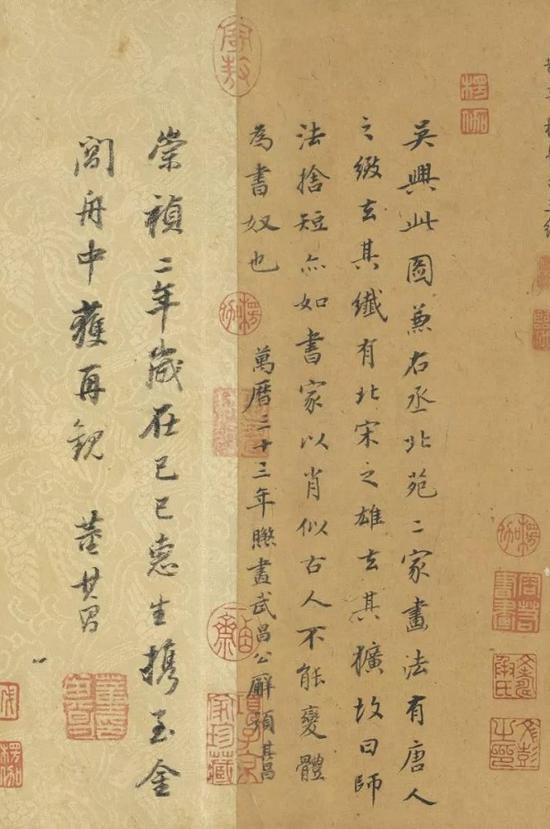 吳興此圖兼右丞北苑二家畫法有唐人
之緻去其纖有北宋之雄去其獷故曰師
法捨短亦如書家以肖似古人不能變體
為書奴也　萬曆三十三年㬠畫武昌公廨題其昌
崇禎二年歲在己巳惠生攜至金
閶舟中獲再觀　董其昌